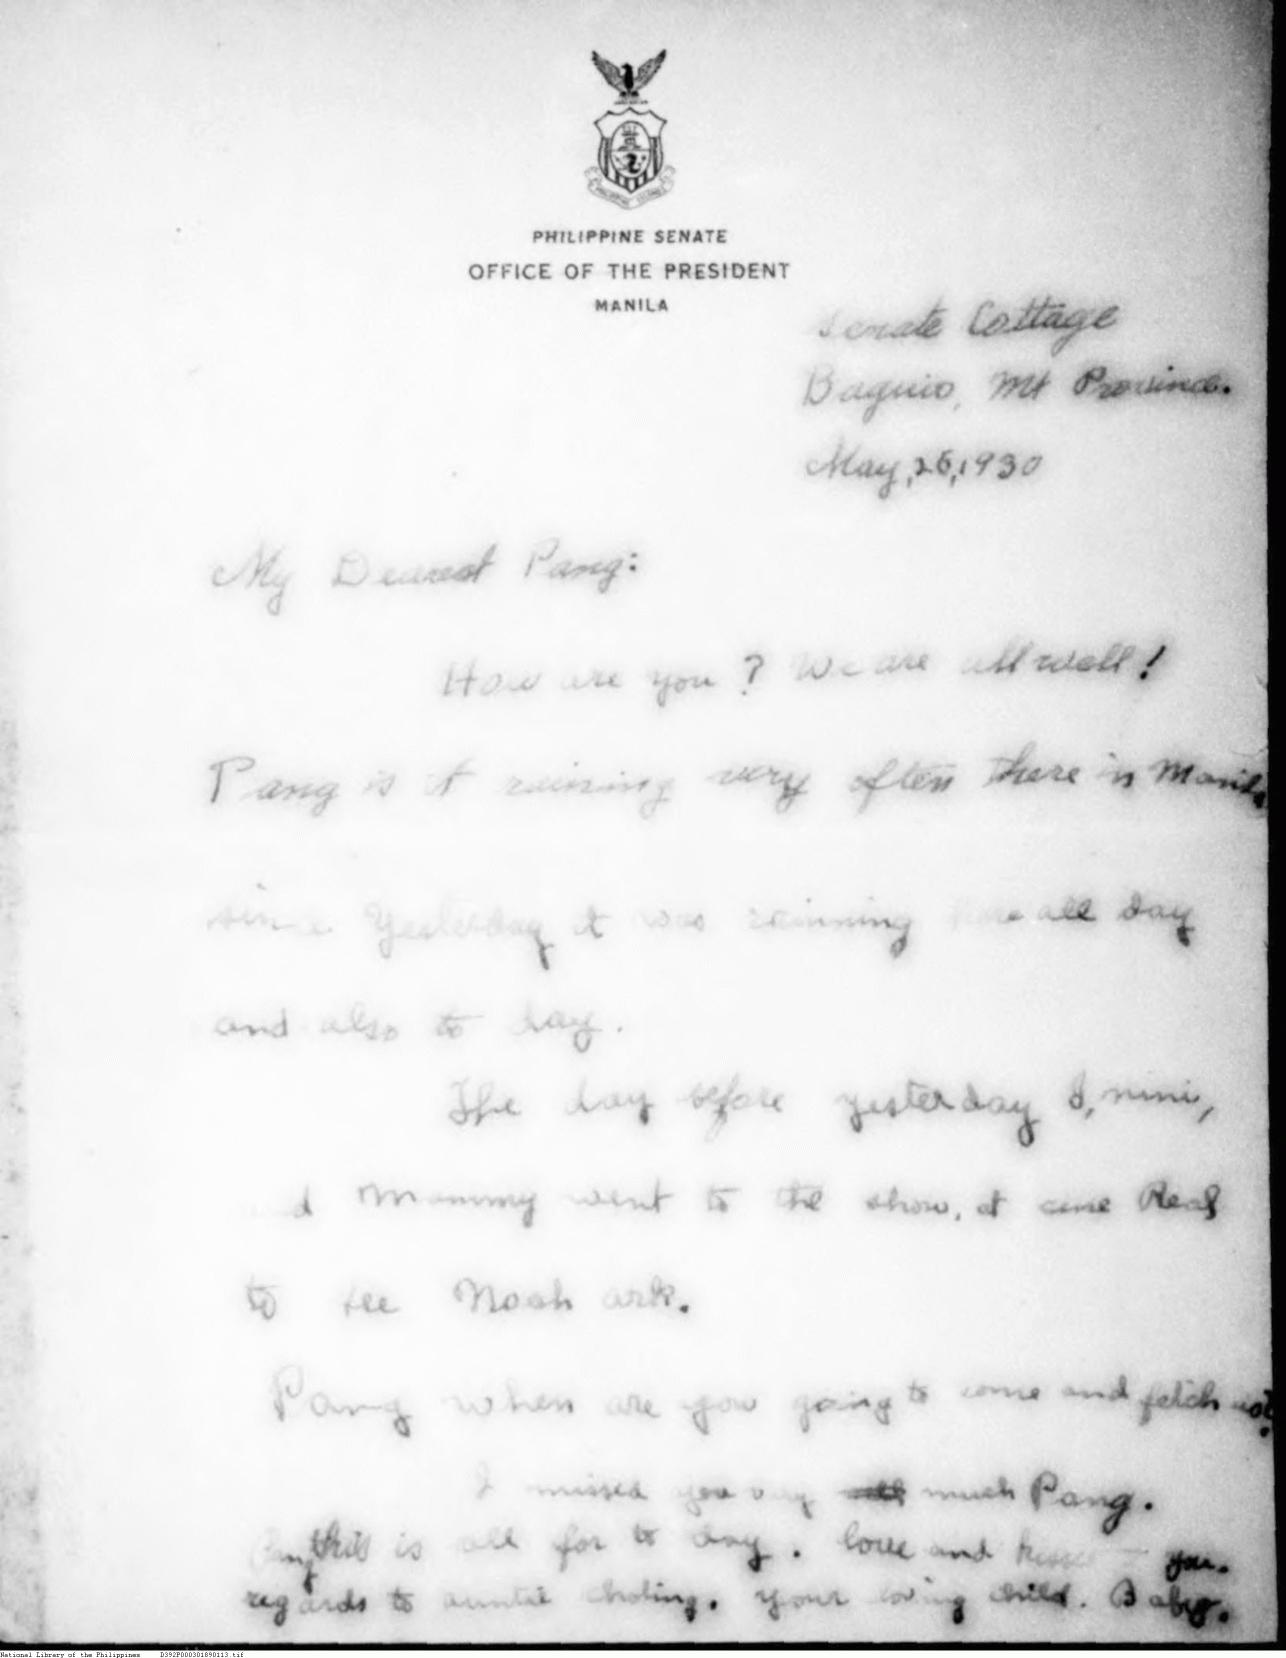 PHILIPPINE SENATE
OFFICE OF THE PRESIDENT
MANILA
Senate Cottage
Baguio, Mt Province.
May, 26, 1930
My Dearest Pang:
How are you? We are all well!
Pang is it raining very often there in Manila
since Yesterday it was rainning here all day
and also to day.
The day before yesterday I, nini,
and Mammy went to the show, at cine Real
to see Noah ark.
Pang when are you going to come and fetch us?
I missed you very much Pang.
Pang this is all for to day. love and kisses to you.
regards to auntie choling. your loving child. Baby.
National Library of the Philippines D392P000301890113.tif